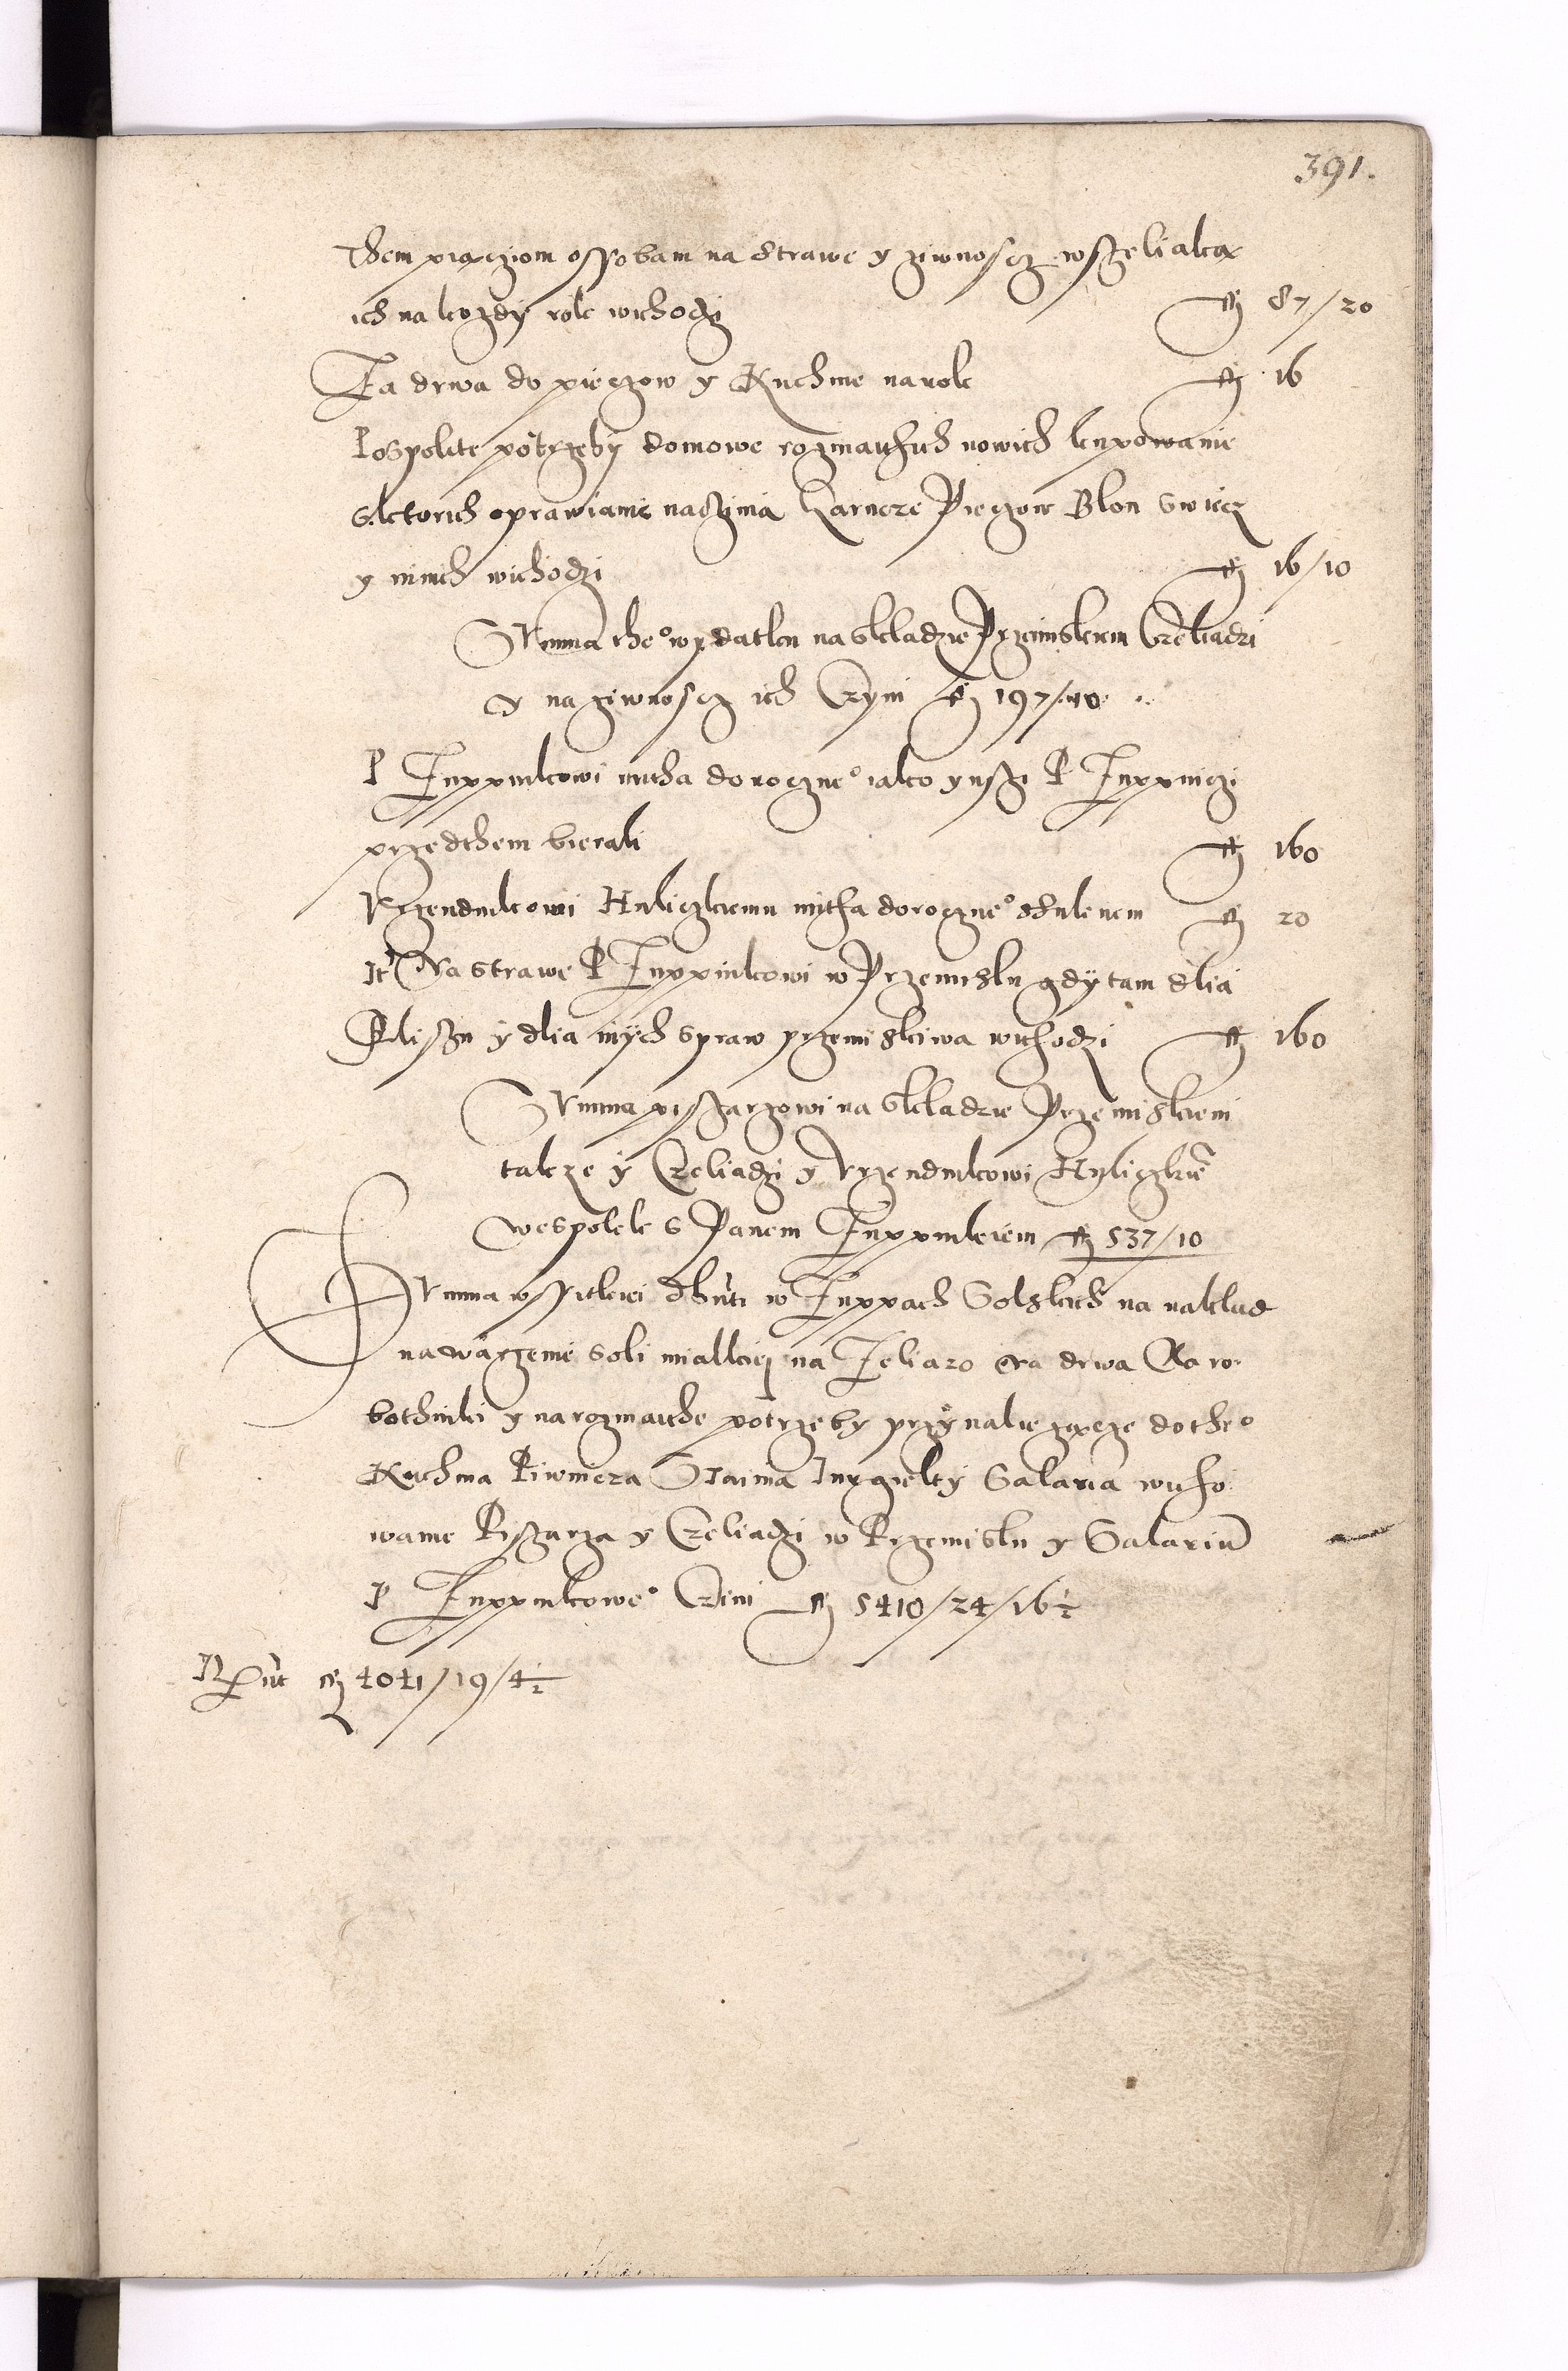 391.
Them piaczjom ossobam na Strawe y ziwnoscz wszeliaką
ich na kozdy rok wichodzi f 87/20
Za drwa do pieczow y Kuchnie na rok f 16
Pospolite potrzeby domowe rozmaithich nowich kupowanie
s ktorich oprawianie naczinia Harncze Pieczow Blon Swiecz
y innich wichodzi f 16/10
Summa the° wydatku na skladzie Przemiskiem Czeliadzi
y na ziwnoscz ich Czyni f 197/10
P Zuppnikowi mitha doroczne° iako y inszi P Zuppniczi
przedthem bierali f 160
Urzendnikowi Huliczkiemu mitha doroczne° Suknem f 20
It Na Strawe P Zuppnikowi w Przemislu gdy tam dlia
Kliszu y dlia inych spraw przemiskiwa wichodzi f 160
Summa piszarzowi na skladzie Przemiskiem
takze y Czeliadzi y Urzendnikowi Huliczkie
wespolek s Panem Zuppnikiem f 537/10
Summa wssitkiei Sumi w Zuppach Solskich na naklad
na warzenie soli mialkiej na Zeliazo Na drwa Na ro
bothniki y na rozmaithe potrzeby przynaliezącze do the°
Kuchnia Piwnicza Staina Jurgielty Salaria wicho
wanie Piszarza y Czeliadzi w Przemislu y Salarium
P Zuppnikowe° Czini f 5410/24/16½
f 4041/19/4½